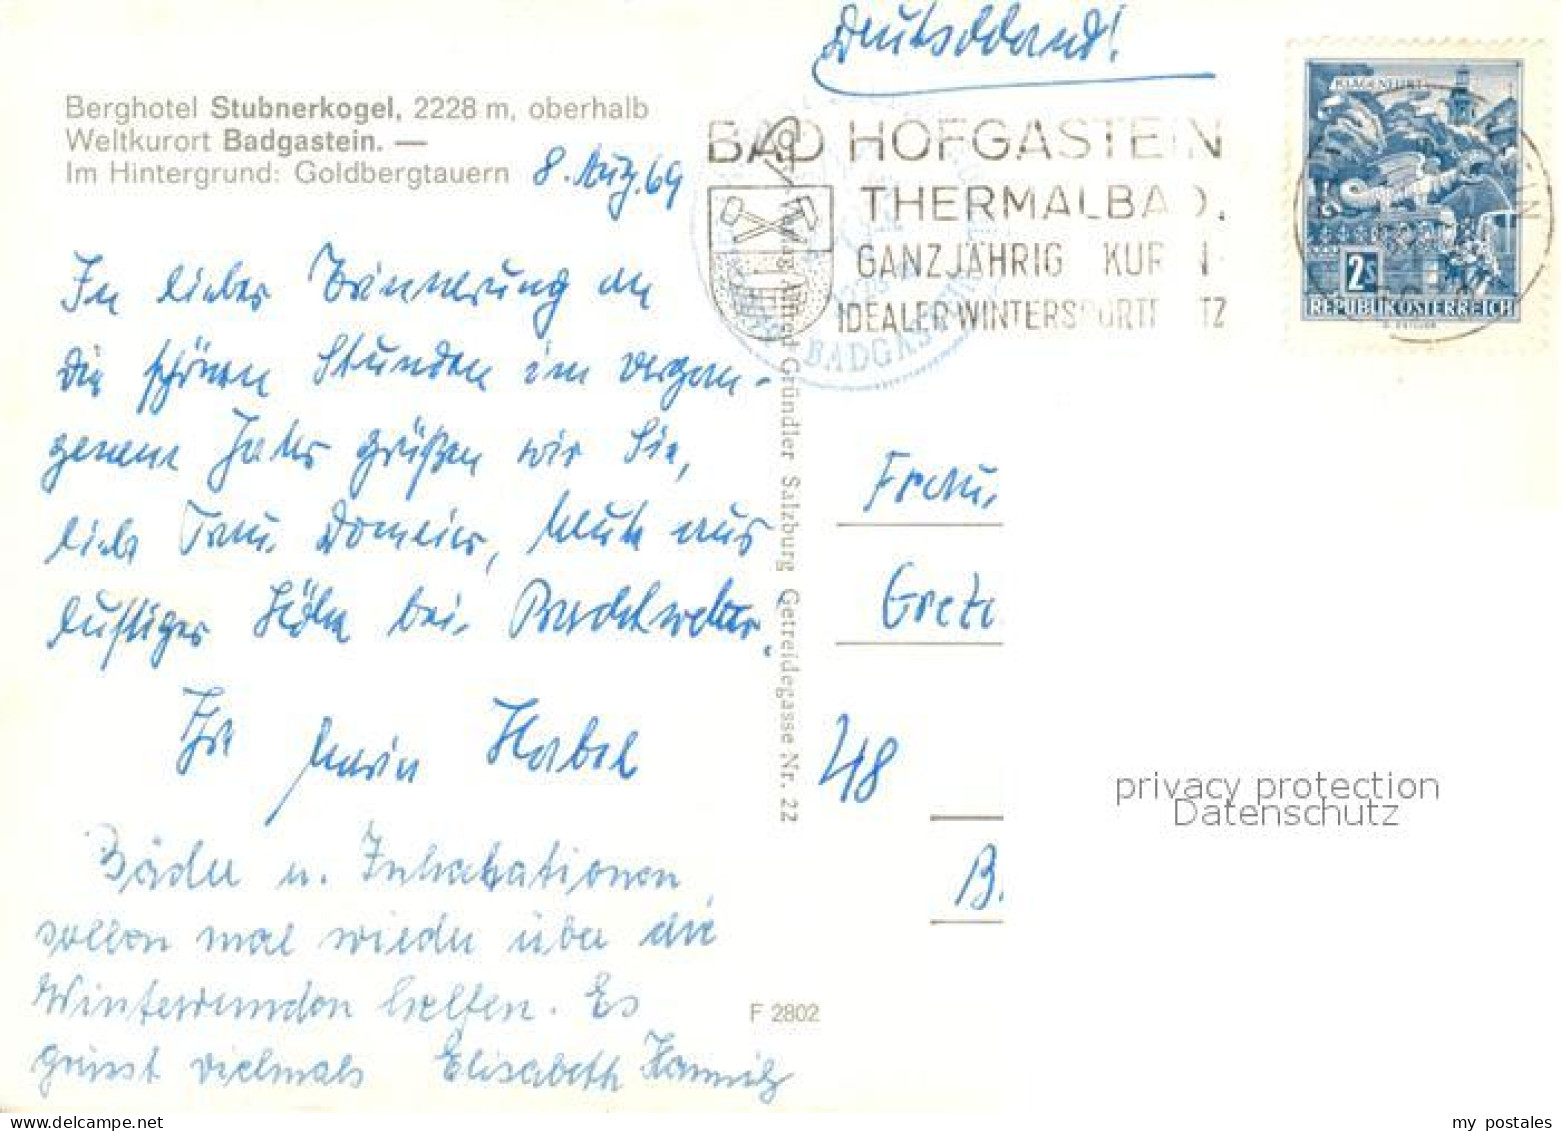 Deutschland!
Berghotel Stubnerkogel, 2228 m, oberhalb
Weltkurort Badgastein. —
Im Hintergrund: Goldbergtauern
8. Aug. 69
In lieber Erinnerung an
die schönen Stunden im vergan-
genem Jahr grüßen wir Sie,
liebe Frau Domeier, heute aus
luftiger Höhe bei Prachtwetter.
Ihr Habel
Bäder u. Inhalationen
sollen mal wieder über die
Winterrunden helfen. Es
grüsst vielmals Elisabeth
BAD HOFGASTEIN
THERMALBAD.
GANZJÄHRIG KUR
IDEALER WINTERSPORTPLATZ
BADGASTEIN
Verlag Alfred Gründler Salzburg Getreidegasse Nr. 22
KLAGENFURT
2S
REPUBLIK ÖSTERREICH
Frau
Grete
48
B.
privacy protection
Datenschutz
F 2802
my postales